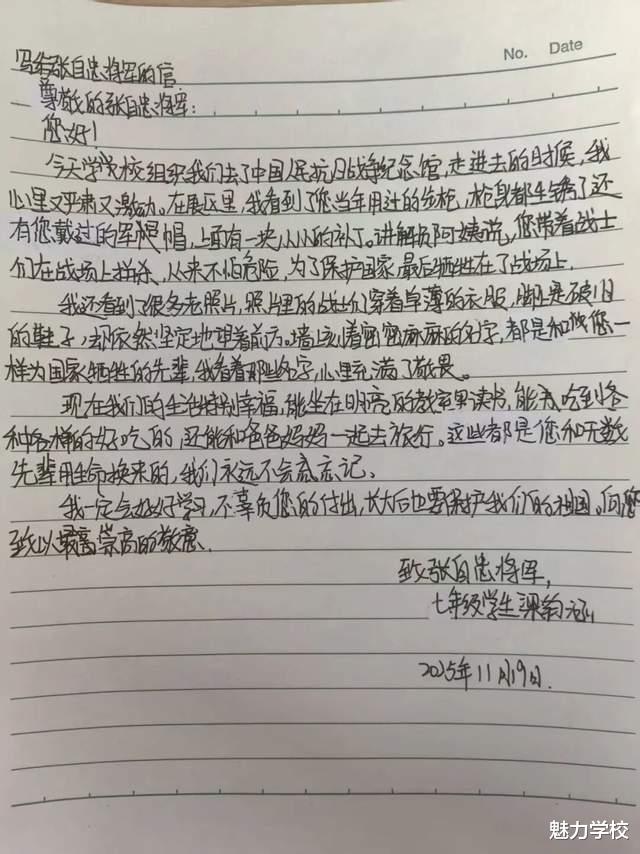 No. Date
写给张自忠将军的信
尊敬的张自忠将军:
您好!
今天学校组织我们去了中国人民抗日战争纪念馆,走进去的时候,我
心里又严肃又激动。在展区里,我看到了您当年用过的步枪,枪身都生锈了还
有您戴过的军帽,上面有一块小小的补丁。讲解员阿姨说,您带着战士
们在战场上拼杀,从来不怕危险,为了保护国家,最后牺牲在了战场上。
我还看到了很多老照片,照片里的战士们穿着单薄的衣服,脚上是破旧
的鞋子,却依然坚定地望着前方。墙上刻着密密麻麻的名字,都是和您一
样为国家牺牲的先辈,我看着那些名字,心里充满了敬畏。
现在我们的生活特别幸福,能坐在明亮的教室里读书,能吃到各
种各样的好吃的,还能和爸爸妈妈一起去旅行。这些都是您和无数
先辈用生命换来的,我们永远不会忘记。
我一定会好好学习,不辜负您的付出,长大后也要保护我们的祖国。向您
致以最崇高的敬意。
致张自忠将军,
七年级学生梁
2025年11月19日.
魅力学校